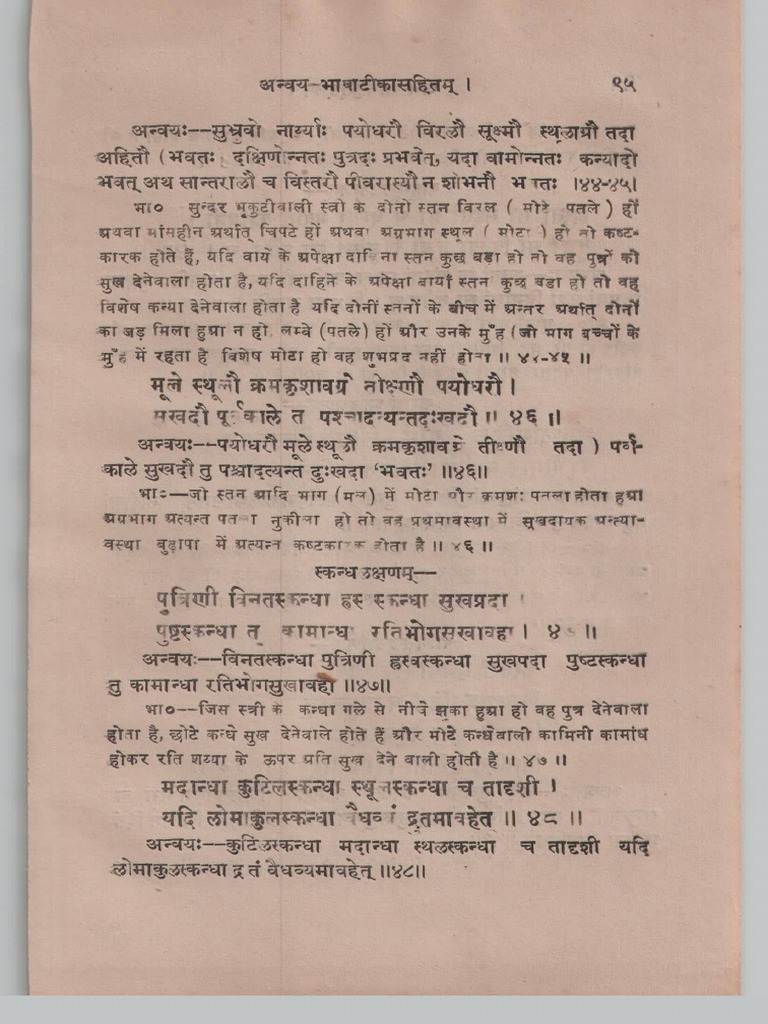 अन्वय-भाषाटीकासहितम् । ९५
अन्वयः--सुभ्रुवो नार्य्याः पयोधरौ विरलौ सूक्ष्मौ स्थूलाग्रौ तदा
अहितौ (भवतः दक्षिणोन्नतः पुत्रदः प्रभवेत्, यदा वामोन्नतः कन्यादो
भवत् अथ सान्तरालौ च विस्तरौ पीवरास्यौ न शोभनौ ।४४-४५।
भा० सुन्दर भृकुटीवाली स्त्री के दोनो स्तन विरल ( मोटे पतले ) हों
अथवा मांसहीन अर्थात् चिपटे हों अथवा अग्रभाग स्थूल ( मोटा ) हो तो कष्ट-
कारक होते हैं, यदि वायें के अपेक्षा स्तन कुछ बडा हो तो वह पुत्रों को
सुख देनेवाला होता है, यदि दाहिने के अपेक्षा बायाँ स्तन कुछ बडा हो तो वह
विशेष कन्या देनेवाला होता है यदि दोनों स्तनों के बीच में अन्तर अर्थात् दोनों
का जड़ मिला हुआ न हो लम्बे (पतले) हों और उनके मुँह (जो भाग बच्चों के
मुँह में रहता है विशेष मोटा हो वह शुभप्रद नहीं होता ॥ ४४-४५ ॥
मूले स्थूलौ क्रमकृशावग्रे पयोधरौ ।
पश्चादत्यन्तदुःखदौ ॥ ४६ ॥
अन्वयः--पयोधरौ मूले स्थूलौ क्रमकृशावग्रे तदा )
काले सुखदौ तु पश्चादत्यन्त दुःखदा ‘भवतः’ ॥४६॥
भा०—जो स्तन आदि भाग (मूल) में मोटा और क्रमशः पतला होता हुआ
अग्रभाग अत्यन्त पतला नुकीला हो तो वह प्रथमावस्था में सुखदायक अन्त्या-
वस्था बुढ़ापा में अत्यन्त कष्टकारक होता है ॥ ४६ ॥
स्कन्धलक्षणम्—
पुत्रिणी विनतस्कन्धा ह्रस्वस्कन्धा सुखप्रदा
पुष्टस्कन्धा तु कामान्धा रतिभोगसुखावहा । ४७ ॥
अन्वयः--विनतस्कन्धा पुत्रिणी ह्रस्वस्कन्धा सुखपदा पुष्टस्कन्धा
तु कामान्धा रतिभोगसुखावहा ॥४७॥
भा०--जिस स्त्री के कन्धा गले से नीचे झुका हुआ हो वह पुत्र देनेवाला
होता है, छोटे कन्धे सुख देनेवाले होते हैं और मोटे कन्धेवाली कामिनी कामांध
होकर रति शय्या के ऊपर अति सुख देने वाली होती है ॥ ४७ ॥
मदान्धा कुटिलस्कन्धा स्थूलस्कन्धा च तादृशी ।
यदि लोमाकुलस्कन्धा वैधव्यं द्रुतमावहेत् ॥ ४८ ॥
अन्वयः--कुटिलस्कन्धा मदान्धा स्थलस्कन्धा च तादृशी यदि
लोमाकुलस्कन्धा द्रतं वैधव्यमावहेत् ॥४८॥